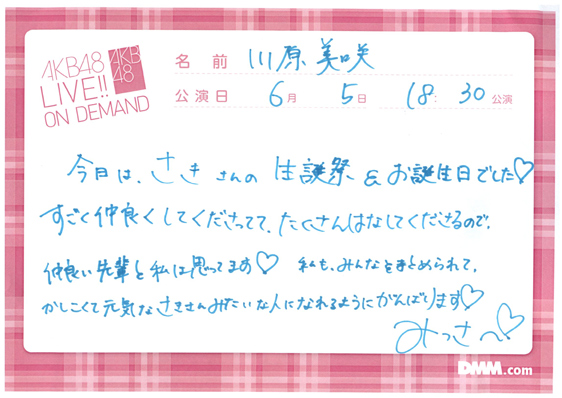 AKB48
LIVE!!
ON DEMAND
AKB
48
名前 川原美咲
公演日 6月 5日 18:30公演
今日は、さきさんの生誕祭&お誕生日でした♡
すごく仲良くしてくださってて、たくさんはなしてくださるので、
仲良い先輩と私は思ってます♡ 私も、みんなをまとめられて、
かしこくて元気なさきさんみたいな人になれるようにがんばります♡
みっさへ♡
DMM.com